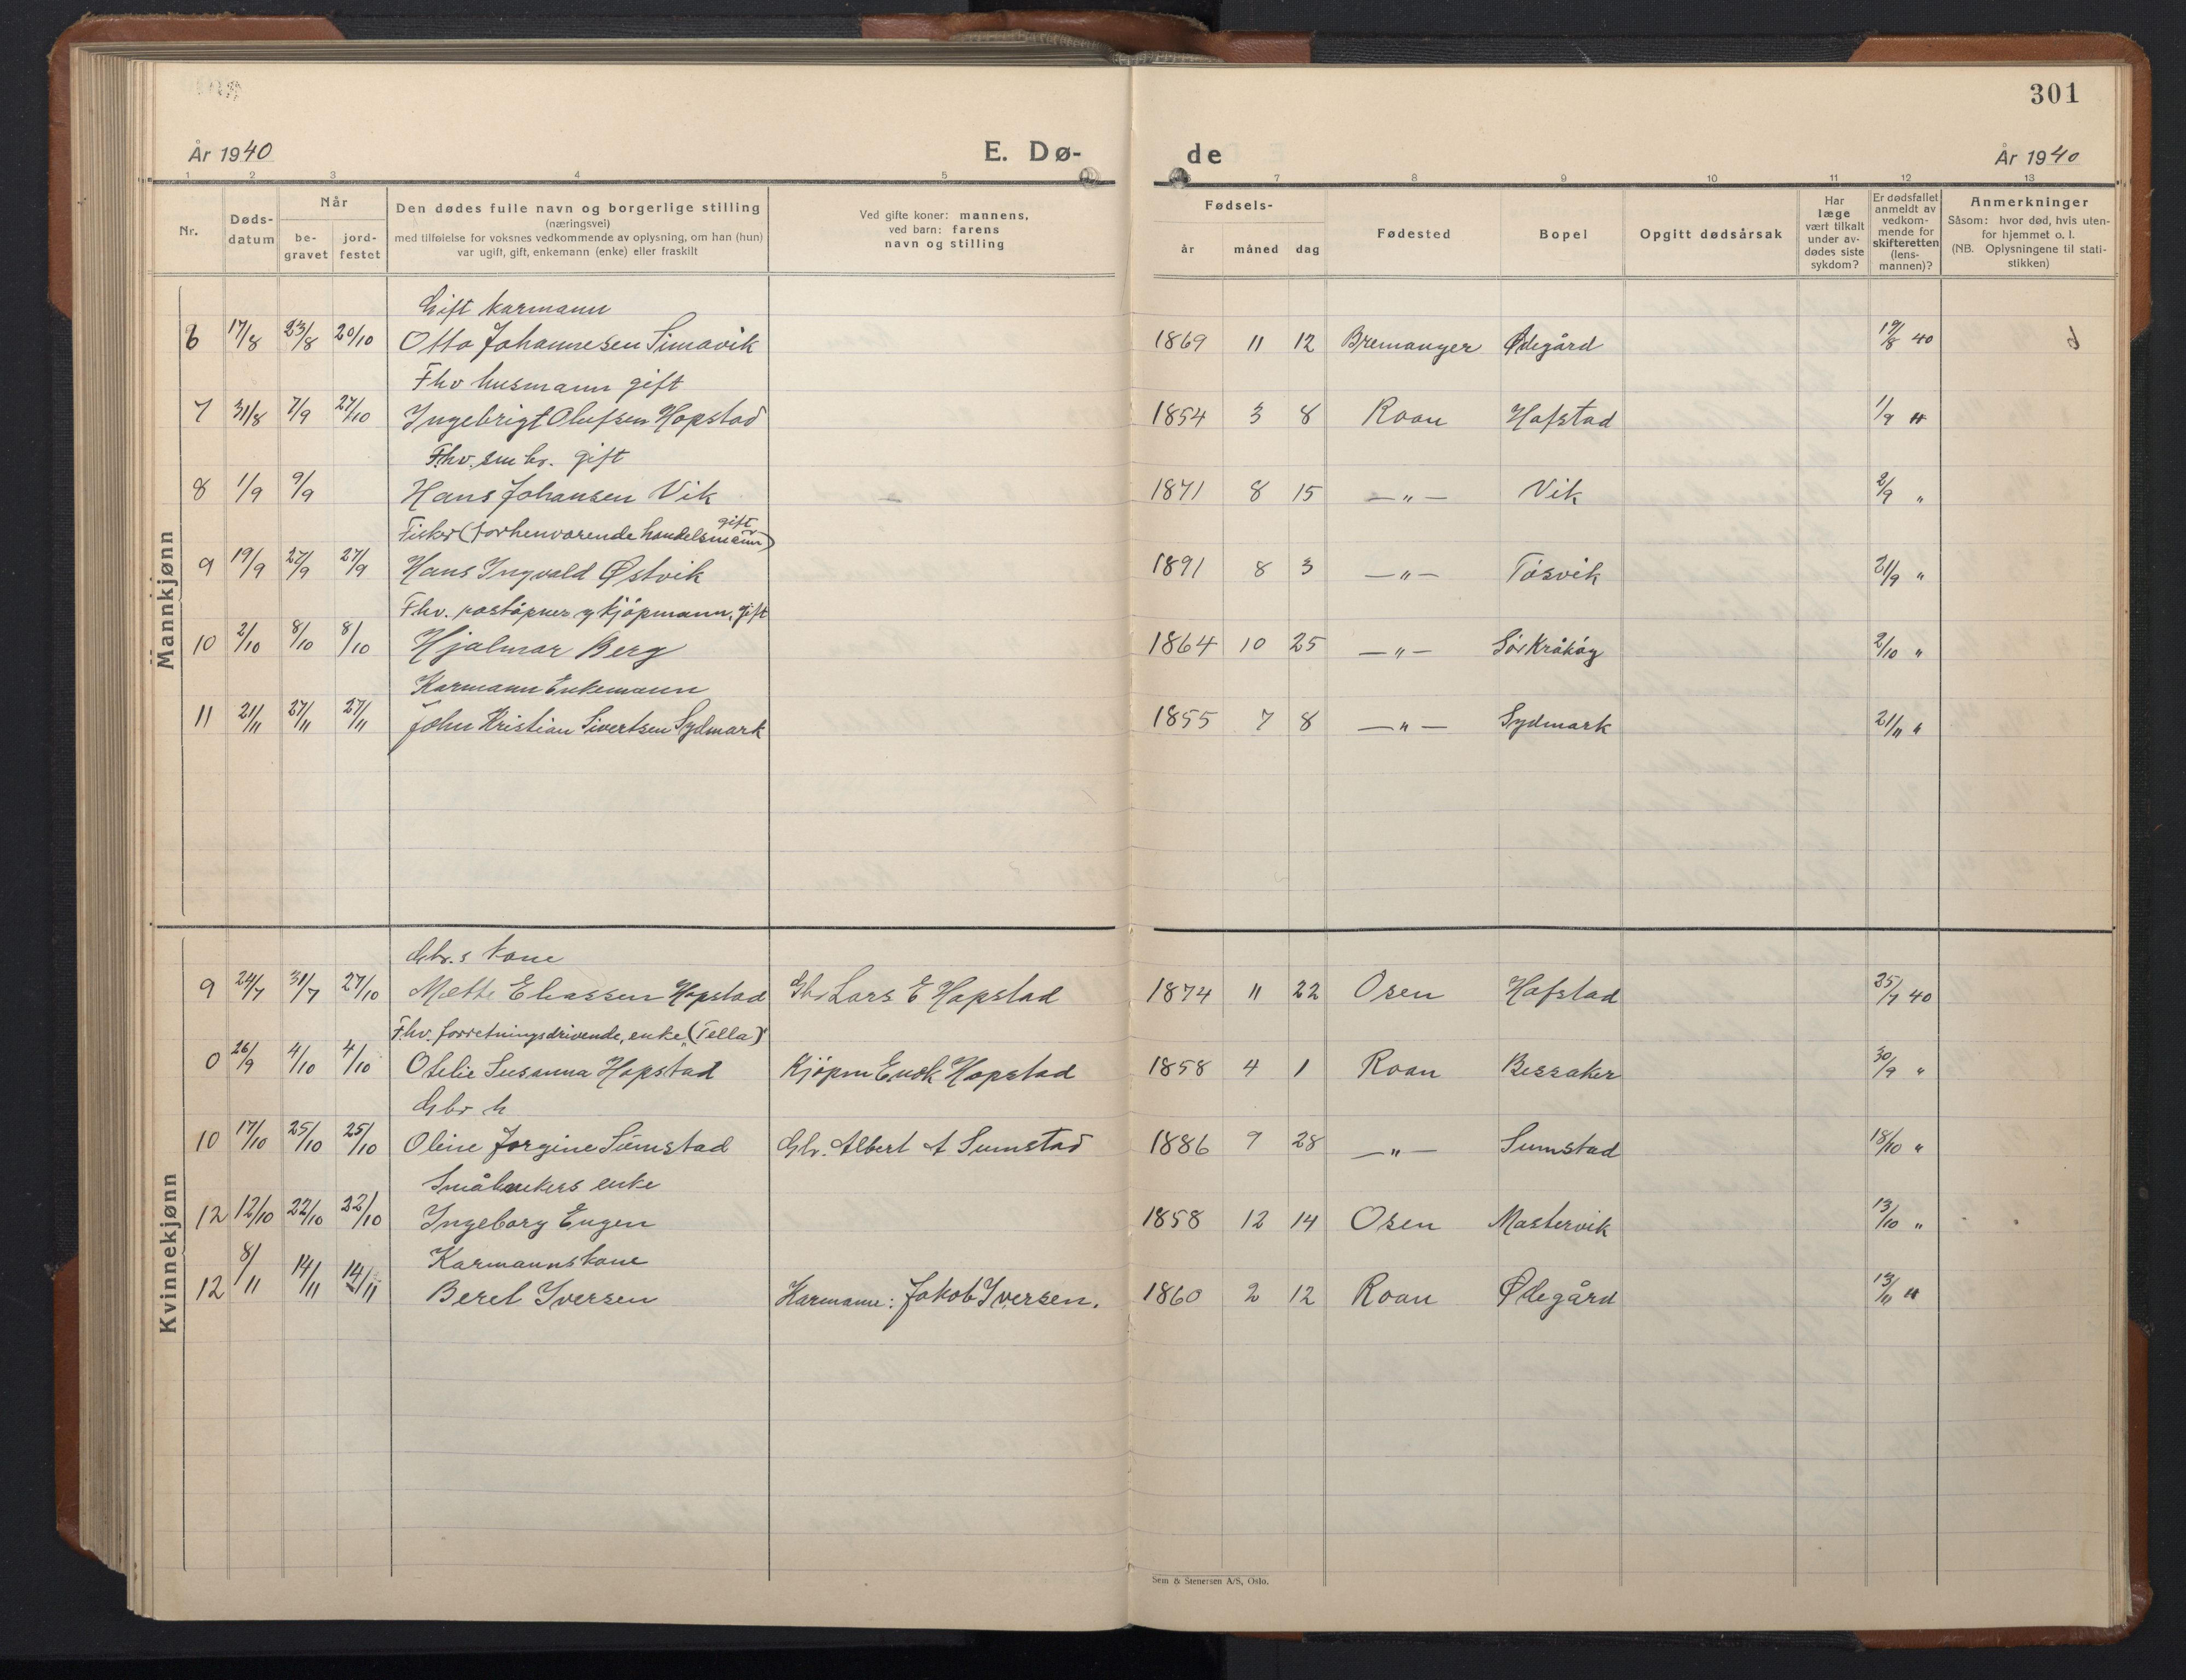 301
År 1940
E. Dø-
de
År 1940
1 2 3 4 5 7 8 9 10 11 12 13
Nr.
Døds-
datum
Når
be-
gravet
jord-
festet
Den dødes fulle navn og borgerlige stilling
(næringsvei)
med tilføielse for voksnes vedkommende av oplysning, om han (hun)
var ugift, gift, enkemann (enke) eller fraskilt
Ved gifte koner: mannens,
ved barn: farens
navn og stilling
Fødsels-
år måned dag
Fødested
Bopel
Opgitt dødsårsak
Har
læge
vært tilkalt
under av-
dødes siste
sykdom?
Er dødsfallet
anmeldt av
vedkom-
mende for
skifteretten
(lens-
mannen)?
Anmerkninger
Såsom: hvor død, hvis uten-
for hjemmet o. l.
(NB. Oplysningene til stati-
stikken)
Mannkjønn
Gift karmann
6 17/8 23/8 20/10 Otto Johannesen Simavik 1869 11 12 Bremanger Ødegård 19/8 40
Fhv husmann gift
7 31/8 7/9 27/10 Ingebrigt Olufsen Hopstad 1854 3 8 Roan Hafstad 1/9 "
Fhv. sm br. gift
8 1/9 9/9 Hans Johansen Vik 1871 8 15 — " — Vik 2/9 "
gift
Fisker (forhenværende handelsmann)
9 19/9 27/9 27/9 Hans Ingvald Østvik 1891 8 3 — " — Tøsvik 21/9 "
Fhv. poståpner og kjøpmann, gift
10 2/10 8/10 8/10 Hjalmar Berg 1864 10 25 — " — Sør Kråkøy 2/10 "
Karmann Enkemann
11 21/11 27/11 27/11 John Kristian Sivertsen Sydmark 1855 7 8 — " — Sydmark 21/11 "
Kvinnekjønn
Gbr.s kone
9 24/7 31/7 27/10 Mette Eliassen Hopstad Gbr Lars E Hopstad 1874 11 22 Osen Hafstad 25/7 40
Fhv. forretningsdrivende, enke, (Tella)
0 26/9 4/10 4/10 Otelie Susanna Hopstad Kjøpm Enok Hopstad 1858 4 1 Roan Bessaker 30/9 "
Gbr k
10 17/10 25/10 25/10 Oline Jorgine Sumstad Gbr. Albert A Sumstad 1886 9 28 — " — Sumstad 18/10 "
Småbrukers enke
12 12/10 22/10 22/10 Ingeborg Eugen 1858 12 14 Osen Mastervik 13/10 "
Karmannskone
12 8/11 14/11 14/11 Beret Iversen Karmann: Jakob Iversen. 1860 2 12 Roan Ødegård 13/11 "
Sem & Stenersen A/S, Oslo.